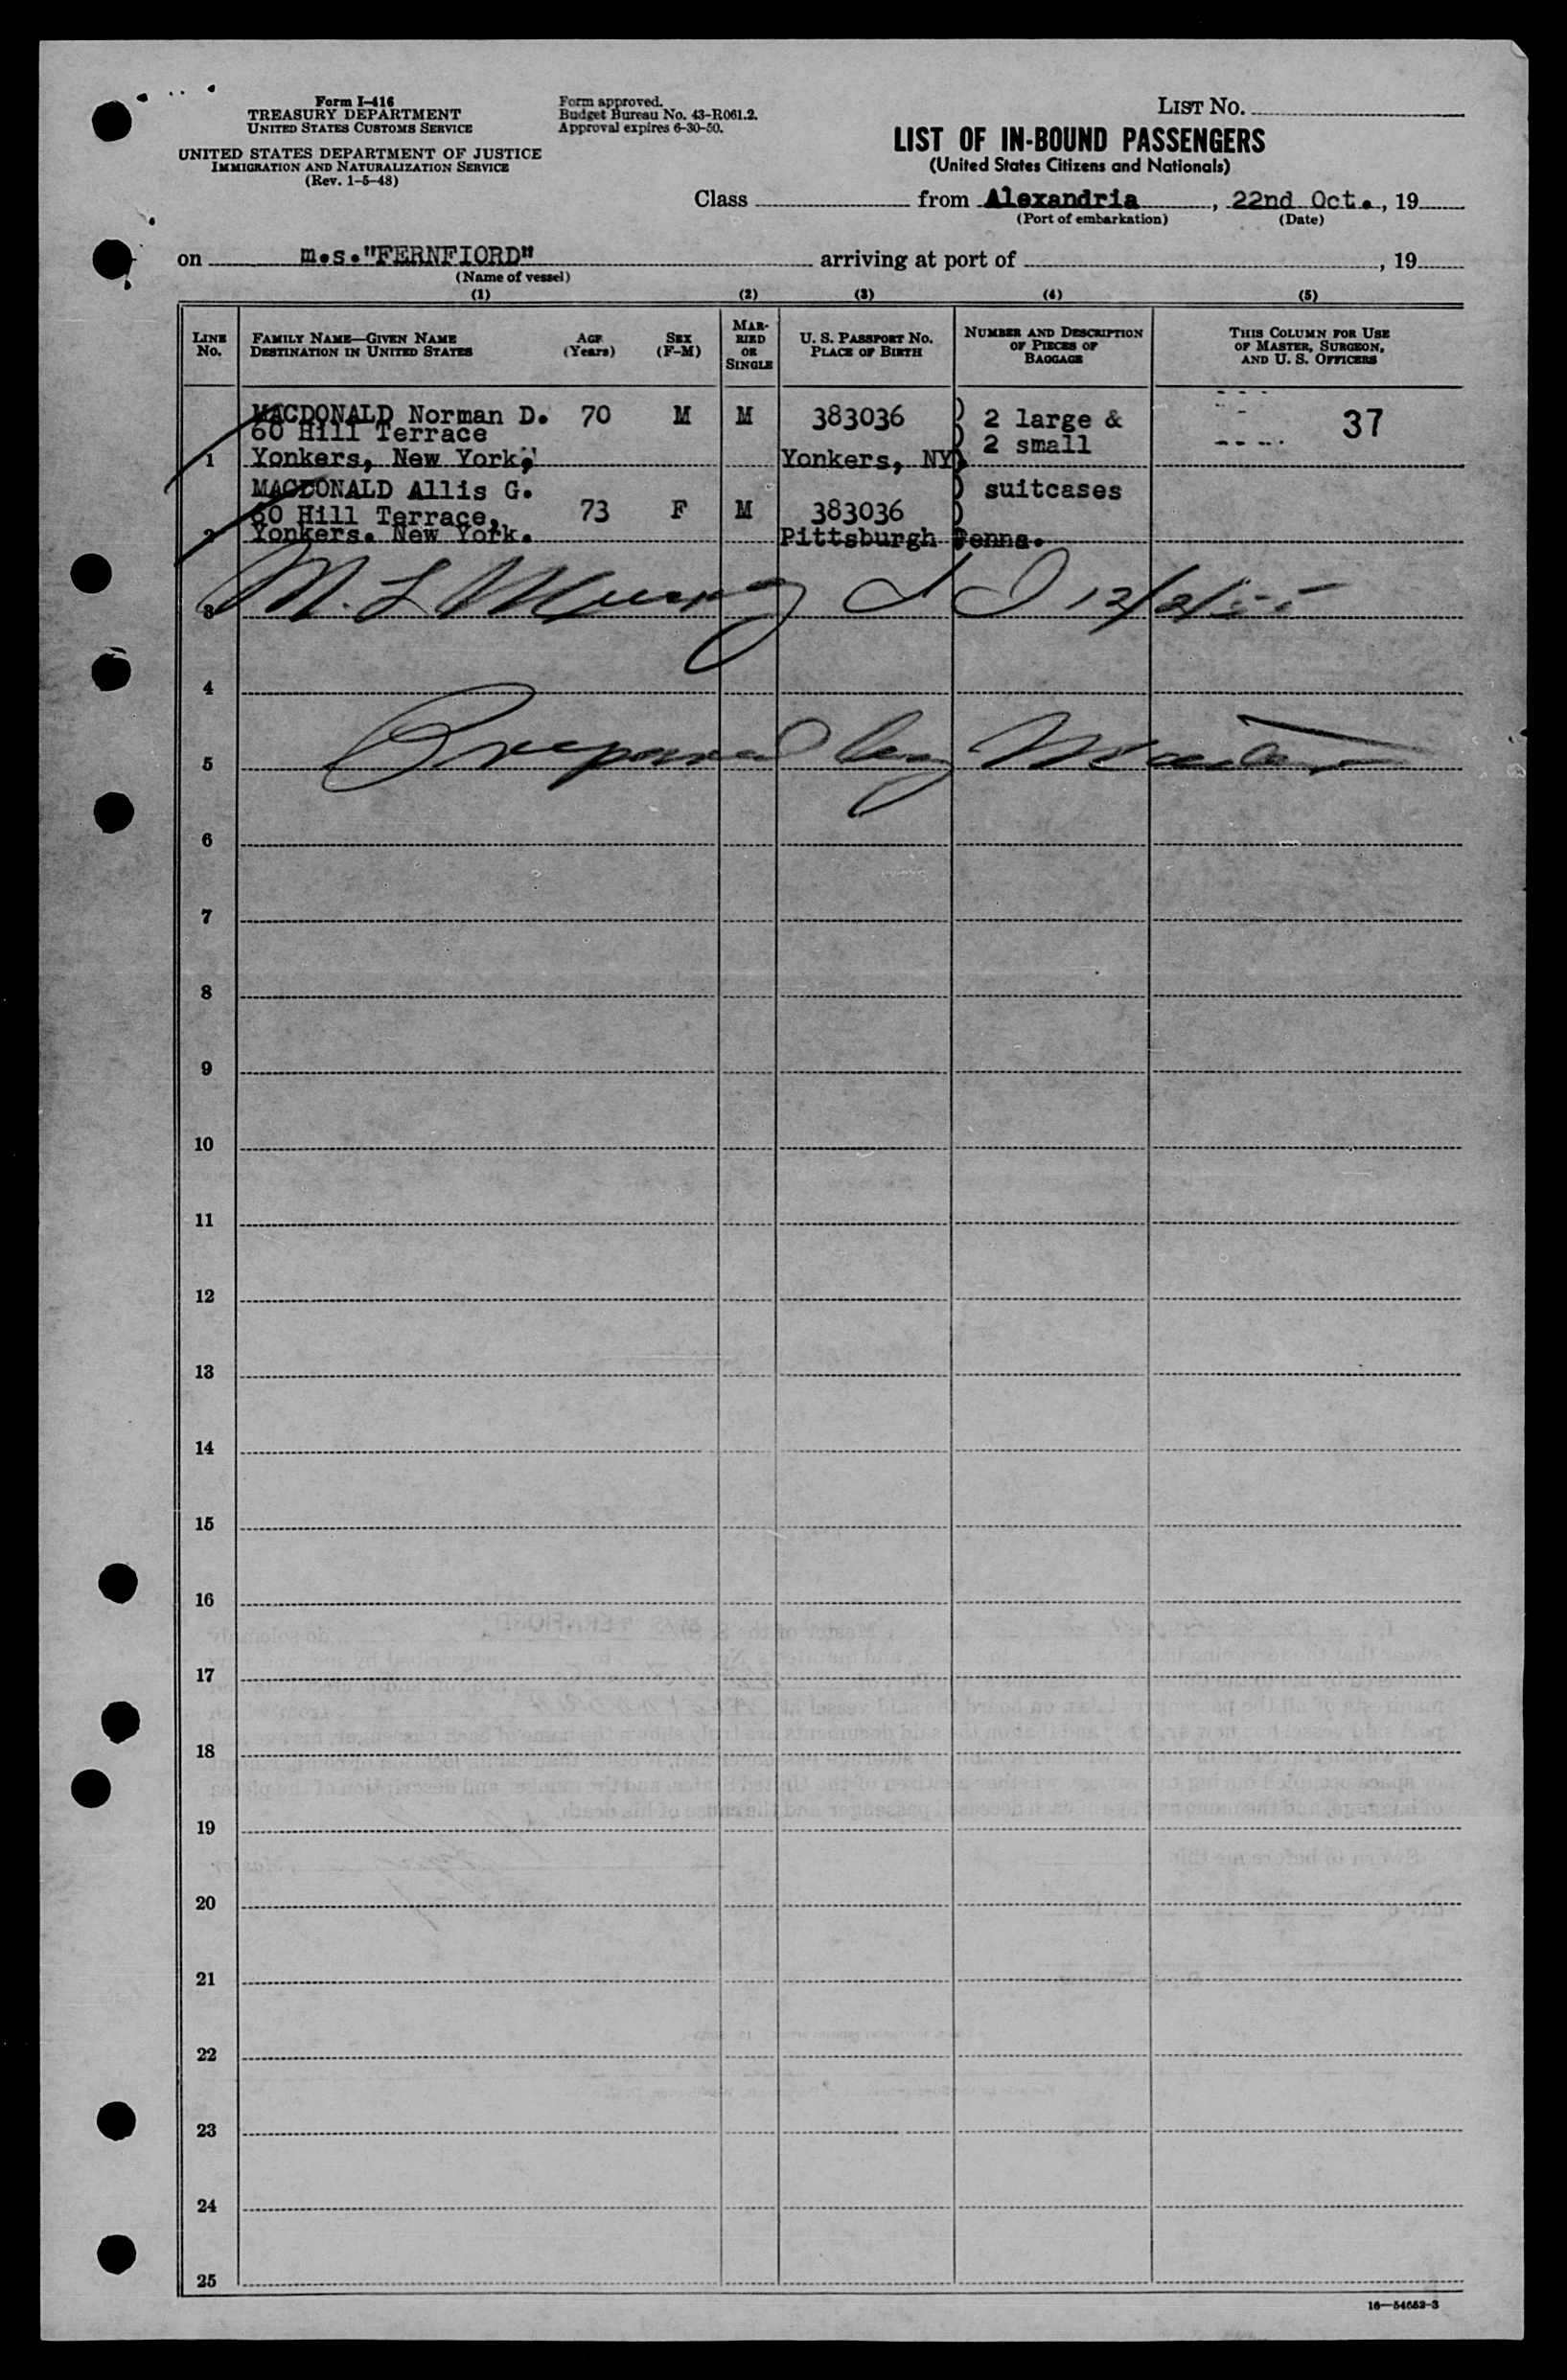 Form I-416
TREASURY DEPARTMENT
UNITED STATES CUSTOMS SERVICE
UNITED STATES DEPARTMENT OF JUSTICE
IMMIGRATION AND NATURALIZATION SERVICE
(Rev. 1-5-48)
Form approved.
Budget Bureau No. 43-R061.2.
Approval expires 6-30-50.
LIST NO.
LIST OF IN-BOUND PASSENGERS
(United States Citizens and Nationals)
Class from Alexandria, 22nd Oct., 19
(Port of embarkation) (Date)
on m.s."FERNFIORD" arriving at port of , 19
(Name of vessel)
(1) (2) (3) (4) (5)
LINE No.
FAMILY NAME—GIVEN NAME
DESTINATION IN UNITED STATES
AGE (Years)
SEX (F-M)
MARRIED OR SINGLE
U. S. PASSPORT NO.
PLACE OF BIRTH
NUMBER AND DESCRIPTION OF PIECES OF BAGGAGE
THIS COLUMN FOR USE OF MASTER, SURGEON, AND U. S. OFFICERS
MACDONALD Norman D. 70 M M 383036 ) 2 large & 37
60 Hill Terrace ) 2 small
1 Yonkers, New York, Yonkers, NY)
MACDONALD Allis G. ) suitcases
60 Hill Terrace, 73 F M 383036 )
2 Yonkers. New York. Pittsburgh Penna.
3 M. L Murphy
4
Prepared by Master
5
6
7
8
9
10
11
12
13
14
15
16
17
18
19
20
21
22
23
24
25
16—54652-3